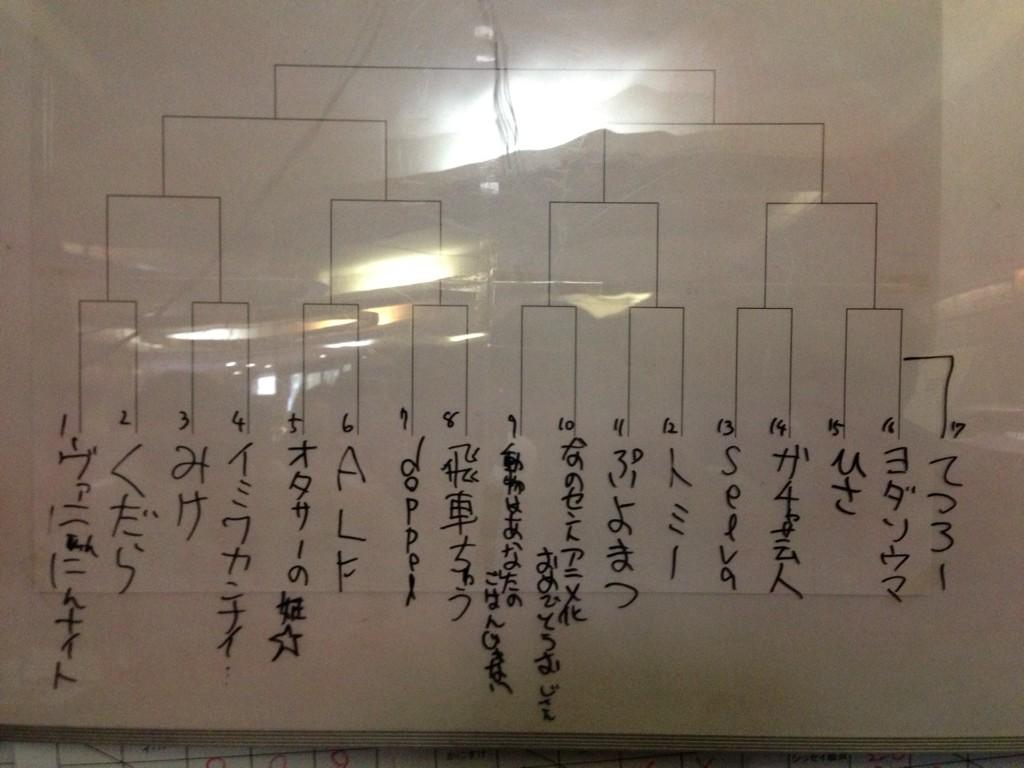 1
ヴァニにんナイト
2
くだら
3
みけ
4
イミワカンナイ…
5
オタサーの姫☆
6
ALF
7
doppel
8
飛車ちゅう
9
動物はあなたの
ごはんじゃない
10
なのセントアニメ化
おめでとうむじゃん
11
ぷよまつ
12
トミー
13
Selva
14
ガチ芸人
15
ひさ
16
ヨダソウマ
17
てつろー